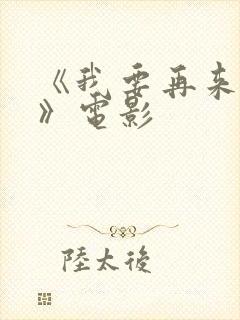 《我要再来
》电影
陸太後